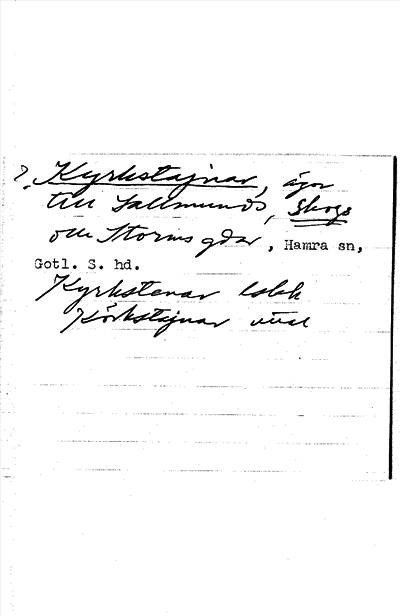 ?. Kyrkstajnar, ägor
till Sallmunds, Skogs
och Storms gdar, Hamra sn,
Gotl. S. hd.
Kyrkstenar
Körkstajnar